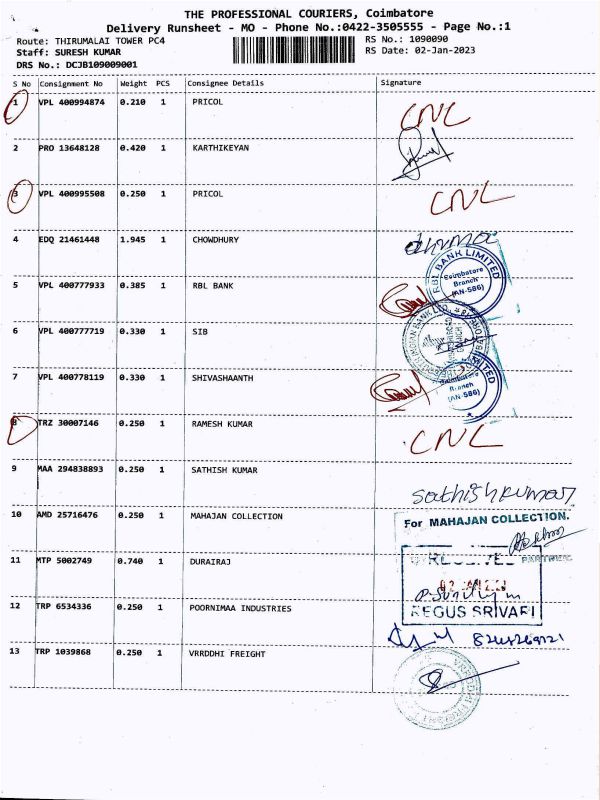 THE PROFESSIONAL COURIERS, Coimbatore
Delivery Runsheet - MO - Phone No.:0422-3505555 - Page No.:1
Route: THIRUMALAI TOWER PC4 RS No.: 1090090
Staff: SURESH KUMAR RS Date: 02-Jan-2023
DRS No.: DCJB109009001
S No Consignment No Weight PCS Consignee Details Signature
1 VPL 400994874 0.210 1 PRICOL CNL
2 PRO 13648128 0.420 1 KARTHIKEYAN
3 VPL 400995508 0.250 1 PRICOL CNL
4 EDQ 21461448 1.945 1 CHOWDHURY
RBL BANK LIMITED
Coimbatore
Branch
(AN-586)
5 VPL 400777933 0.385 1 RBL BANK
6 VPL 400777719 0.330 1 SIB
7 VPL 400778119 0.330 1 SHIVASHAANTH
LIMITED
Coimbatore
Branch
(AN-586)
8 TRZ 30007146 0.250 1 RAMESH KUMAR CNL
9 MAA 294838893 0.250 1 SATHISH KUMAR
sathishkumar
10 AMD 25716476 0.250 1 MAHAJAN COLLECTION For MAHAJAN COLLECTION.
PARTNER
11 MTP 5002749 0.740 1 DURAIRAJ
RECEIVED
12 TRP 6534336 0.250 1 POORNIMAA INDUSTRIES REGUS SRIVARI
13 TRP 1039868 0.250 1 VRRDDHI FREIGHT